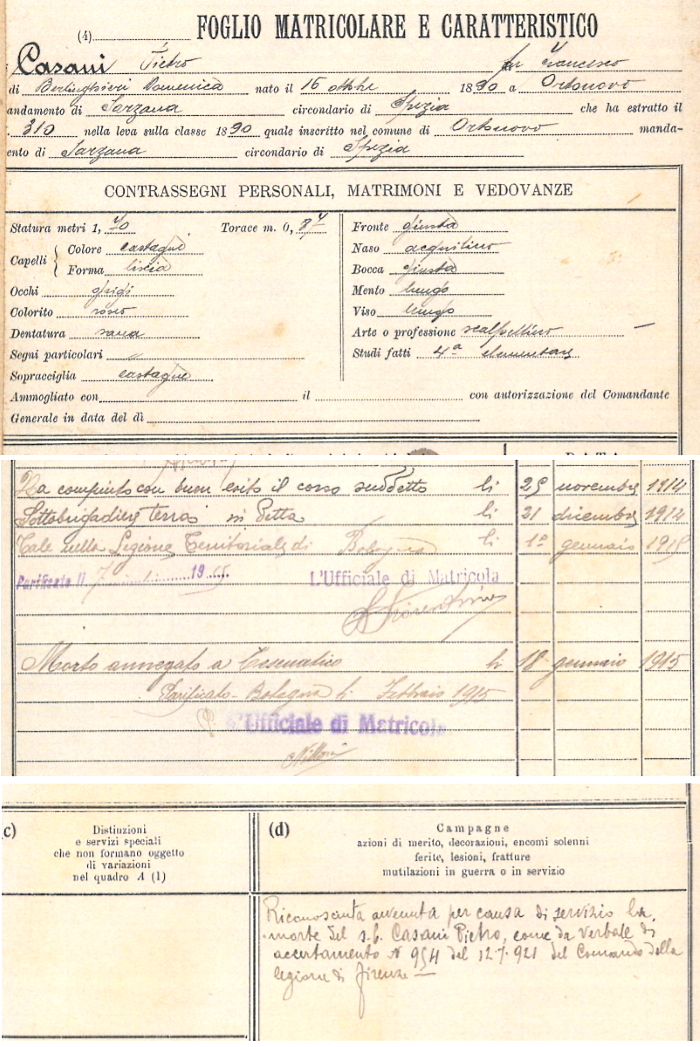 (4) FOGLIO MATRICOLARE E CARATTERISTICO
Casani Pietro fu Francesco
di Berlinghieri Domenica nato il 16 ottbre 1890 a Ortonovo
andamento di Sarzana circondario di Spezia che ha estratto il
310 nella leva sulla classe 1890 quale inscritto nel comune di Ortonovo manda-
ento di Sarzana circondario di Spezia
CONTRASSEGNI PERSONALI, MATRIMONI E VEDOVANZE
Statura metri 1, 70 Torace m. 0, 87
Capelli Colore castagni
Forma liscia
Occhi grigi
Colorito roseo
Dentatura sana
Segni particolari "
Sopracciglia castagne
Fronte giusta
Naso acquilino
Bocca giusta
Mento lungo
Viso lungo
Arte o professione scalpellino
Studi fatti 4a elementare
Ammogliato con il con autorizzazione del Comandante
Generale in data del dì
DATA
Ha compiuto con buon esito il corso suddetto li 25 novembre 1914
Sottobrigadiere "terra" in detta li 31 dicembre 1914
Tale nella Legione Territoriale di Bologna li 1° gennaio 1915
Parificato li 19
L'Ufficiale di Matricola
Morto annegato a Cesenatico li 18 gennaio 1915
Parificato - Bologna li Febbraio 1915
L'Ufficiale di Matricola
c)
Distinzioni
e servizi speciali
che non formano oggetto
di variazioni
nel quadro A (1)
(d)
Campagne
azioni di merito, decorazioni, encomi solenni
ferite, lesioni, fratture
mutilazioni in guerra o in servizio
Riconosciuta avvenuta per causa di servizio la
morte del s.b. Casani Pietro, come da verbale di
accertamento N 954 del 12.7.921 del Comando della
legione di Firenze —